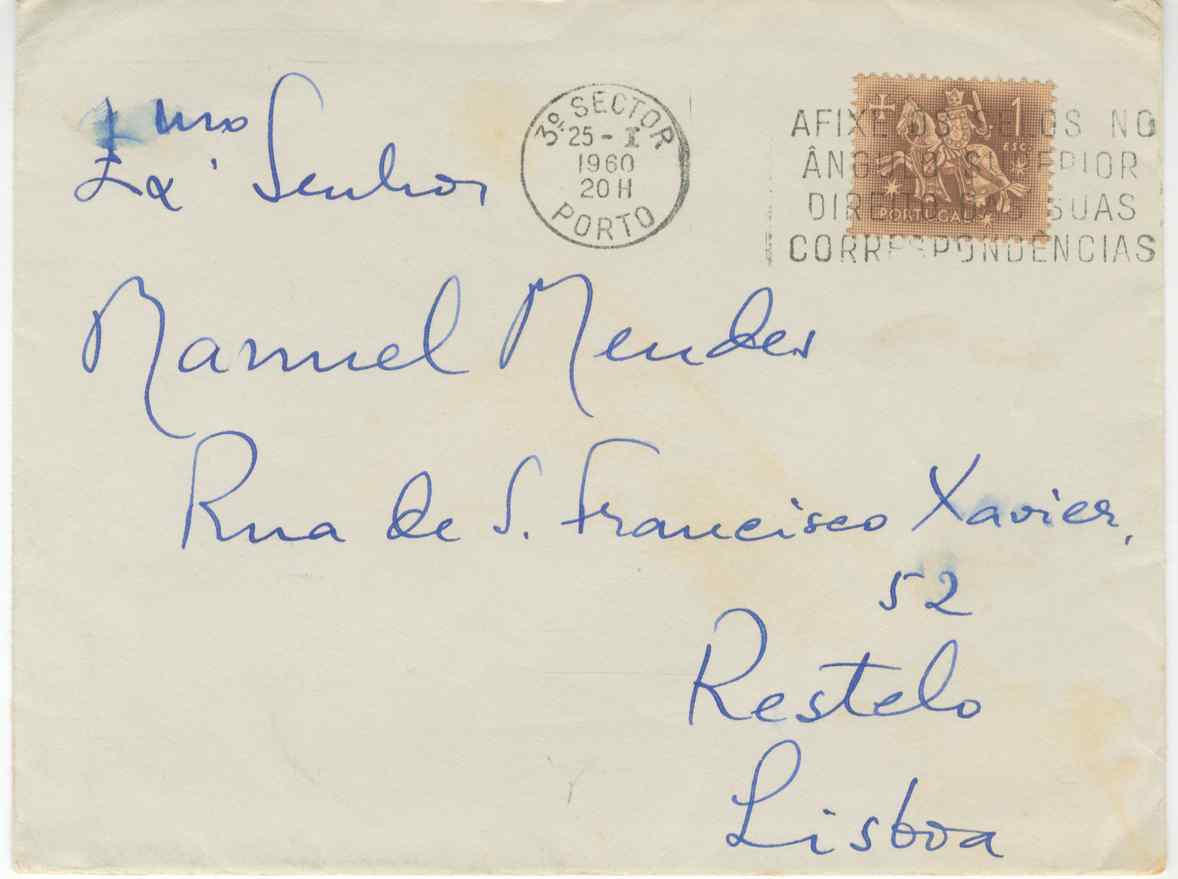 Exmo Senhor
Manuel Mendes
Rua de S. Francisco Xavier,
52
Restelo
Lisboa
3º SECTOR
25-I
1960
20H
PORTO
AFIXE OS SELOS NO
ÂNGULO SUPERIOR
DIREITO DAS SUAS
CORRESPONDÊNCIAS
1
ESC.
PORTUGAL